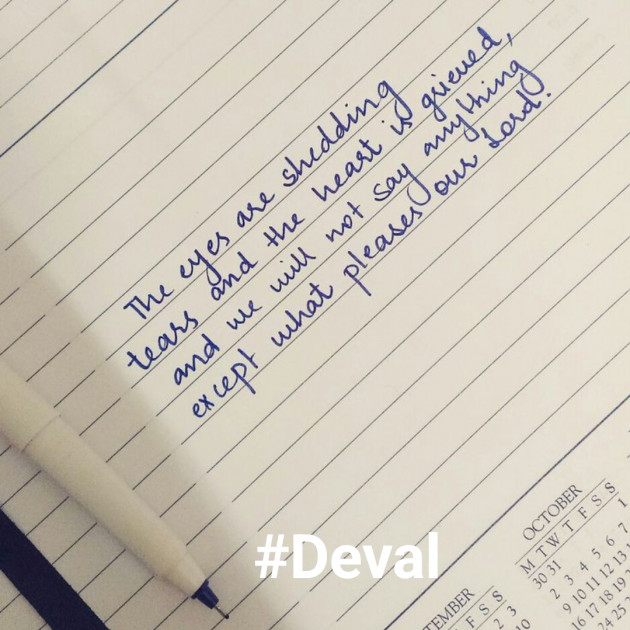 The eyes are shedding
tears and the heart is grieved,
and we will not say anything
except what pleases our Lord.
#Deval
OCTOBER
M T W T F S S
30 31 1
2 3 4 5 6 7
9 10 11 12 13
16 17 18 19
24 25
TEMBER
F S S
2 3
10